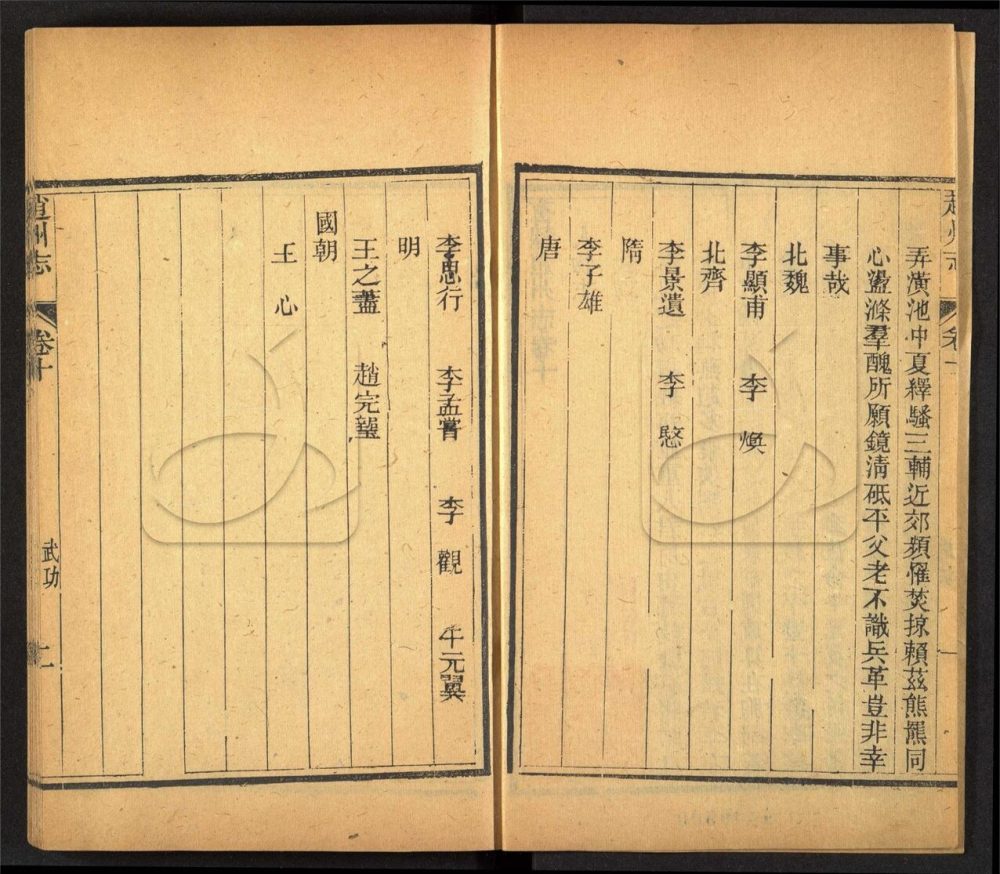 弄潢池中夏繹騷三輔近郊頻罹焚掠賴茲熊羆同
心盪滌羣醜所願鏡淸砥平父老不識兵革豈非幸
事哉
北魏
李顯甫 李煥
北齊
李景遺 李愍
隋
李子雄
唐
李思行 李孟嘗 李觀 牛元翼
明
王之藎 趙完璧
國朝
王心
趙州志 卷十 武功 二